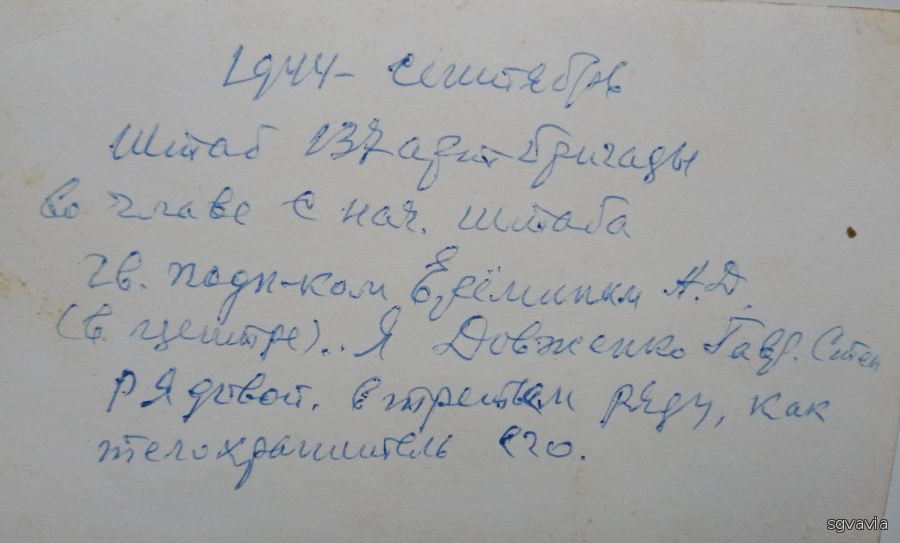 1944 - сентябрь
Штаб 137 арт-бригады
во главе с нач. штаба
гв. подп-ком Ерёминым А.Д.
(в центре). Я Довженко Гавр. Степ
рядовой. в третьем ряду, как
телохранитель его.
sgvavia